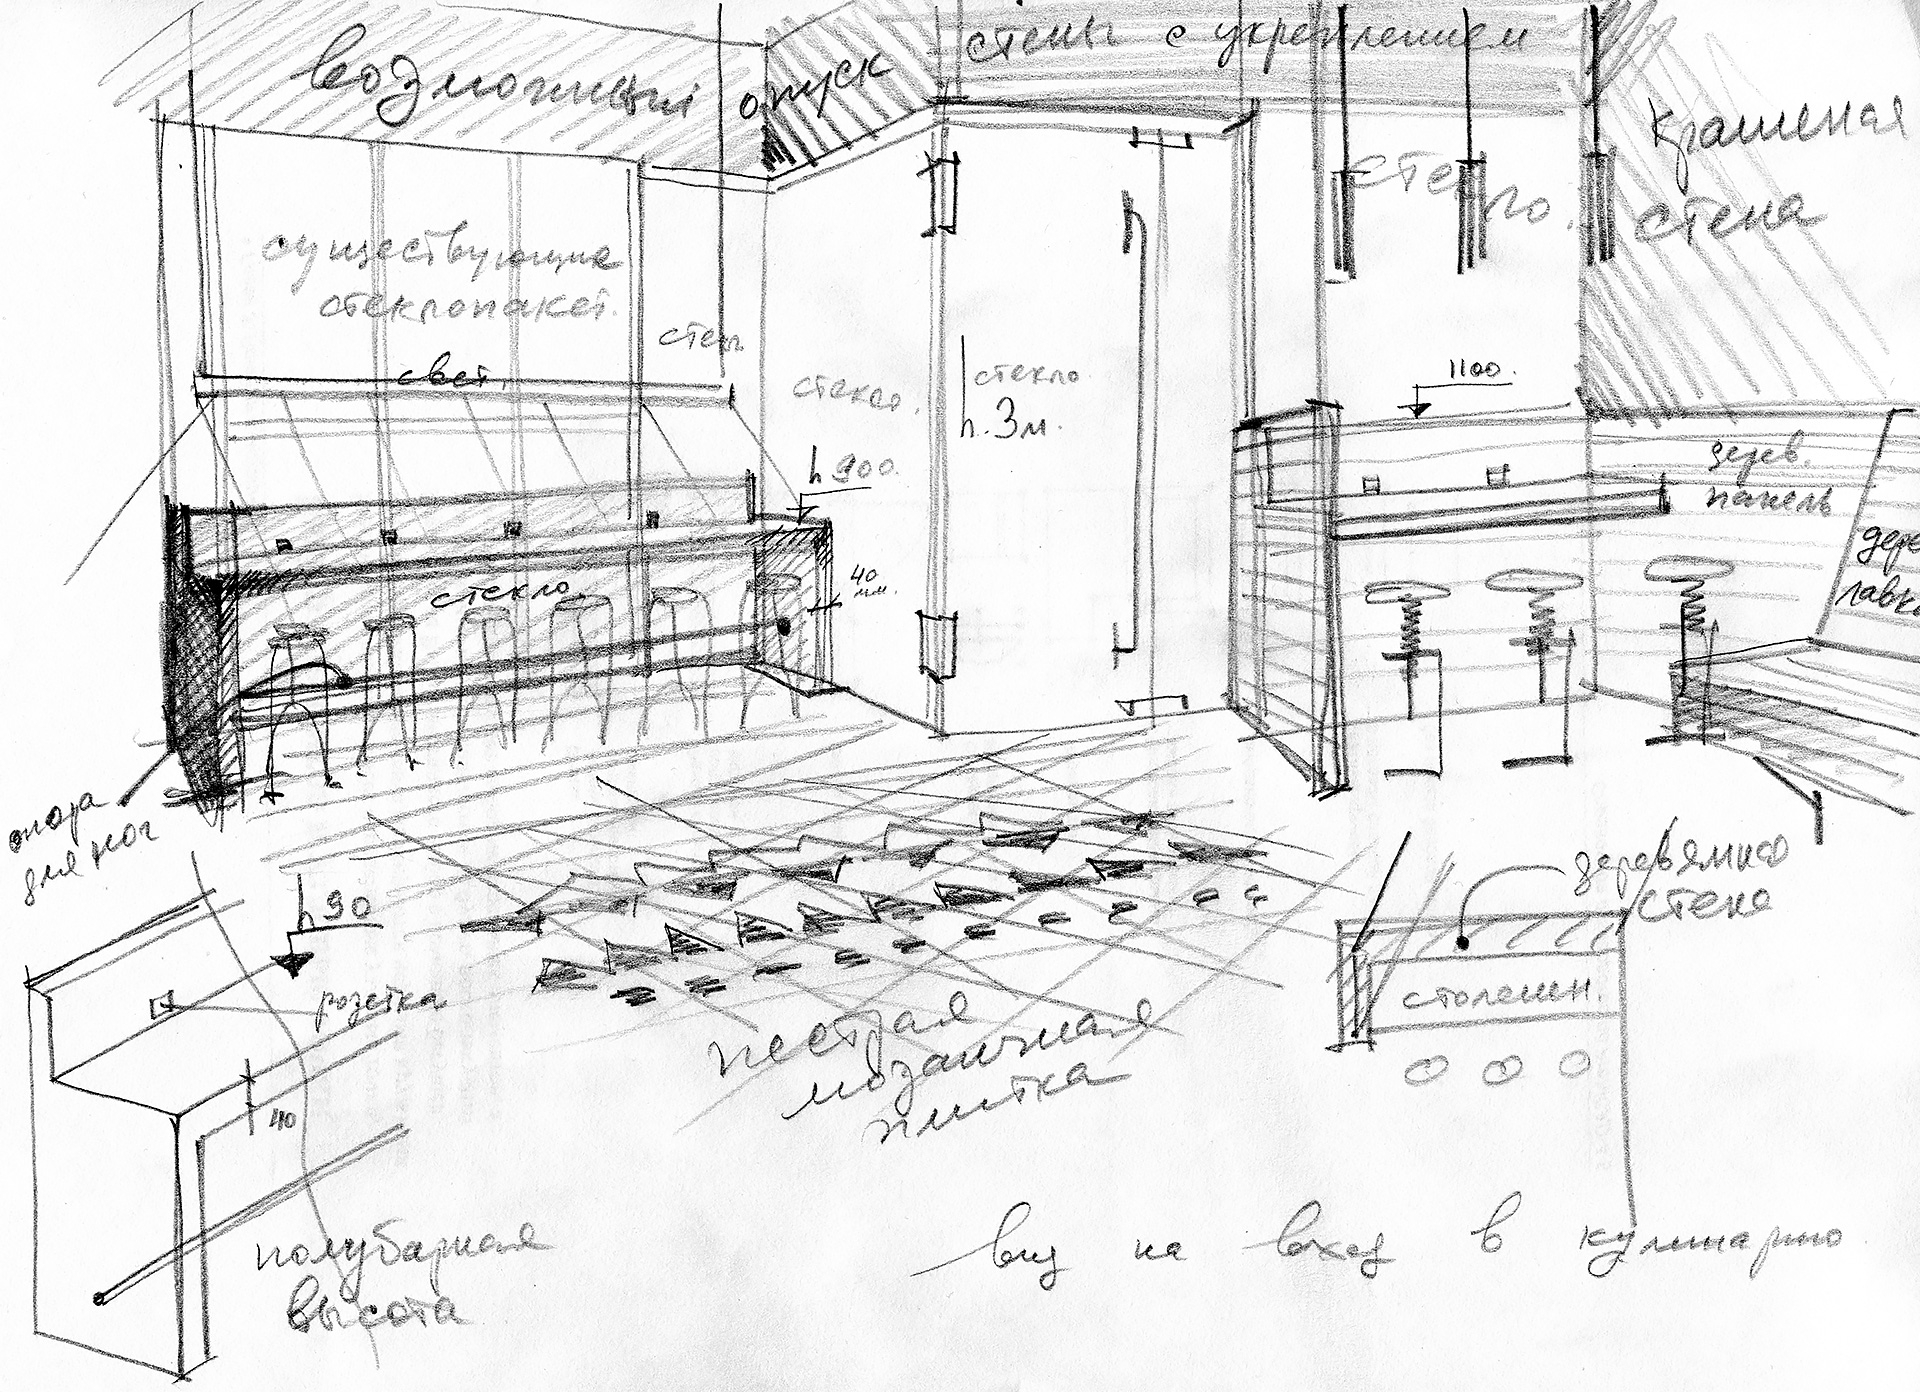 возможный опуск стены с укреплением
крашеная
стена
стекло.
существующие
стеклопакет.
свет.
стекло.
стекло
h. 3м.
1100.
h 900.
дерев.
панель
лавка
стекло.
40
мм.
опора
для ног
h 90
розетка
40
полубарная
высота
пестрая
мозаичная
плитка
деревянная
стена
столешн.
вид на вход в кулинарию